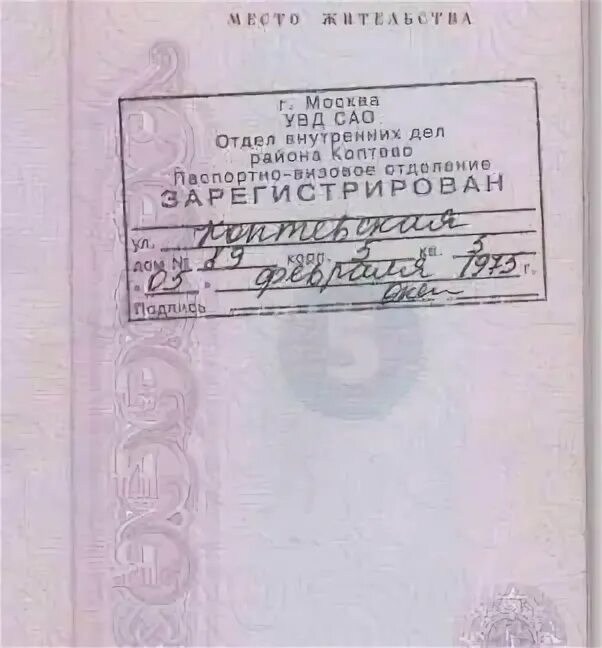 МЕСТО ЖИТЕЛЬСТВА
г. Москва
УВД САО
Отдел внутренних дел
района Коптево
Паспортно-визовое отделение
ЗАРЕГИСТРИРОВАН
ул. Коптевская
дом № 89 корп. 5 кв. 5
" 03 " февраля 1975 г.
Подпись
5